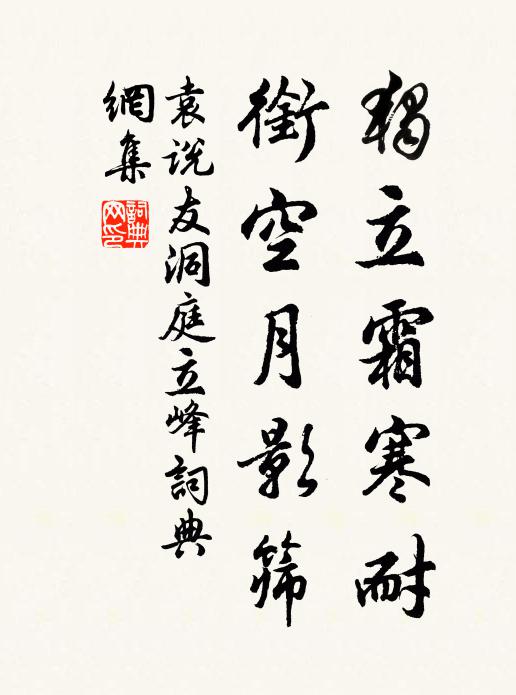 獨立霜寒耐
銜空月影篩
袁说友洞庭立峰詞典
網集
詞典網印